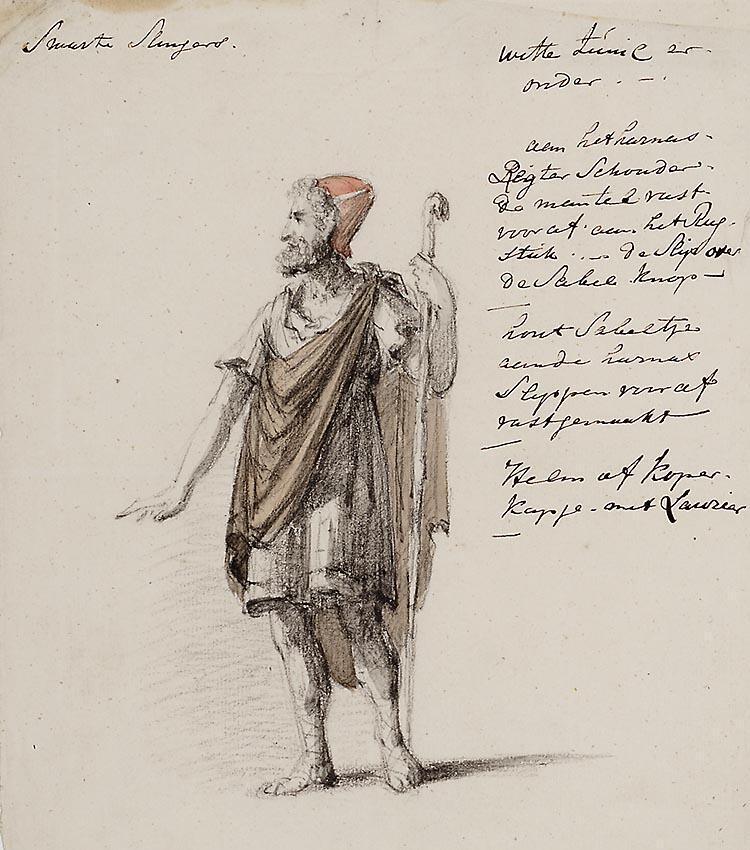 Smarte Slingers.
witte tunie er
onder . - .
aan het harnas -
Regter Schouder -
De mantel vast
voor af aan het Rug -
stuk . . - de Slip over
de Sabel Knop -
hout Sabeltje
aan de harnax
Slippen voor af
vastgemaakt -
Helm of Koper -
Kapje - met Laurier